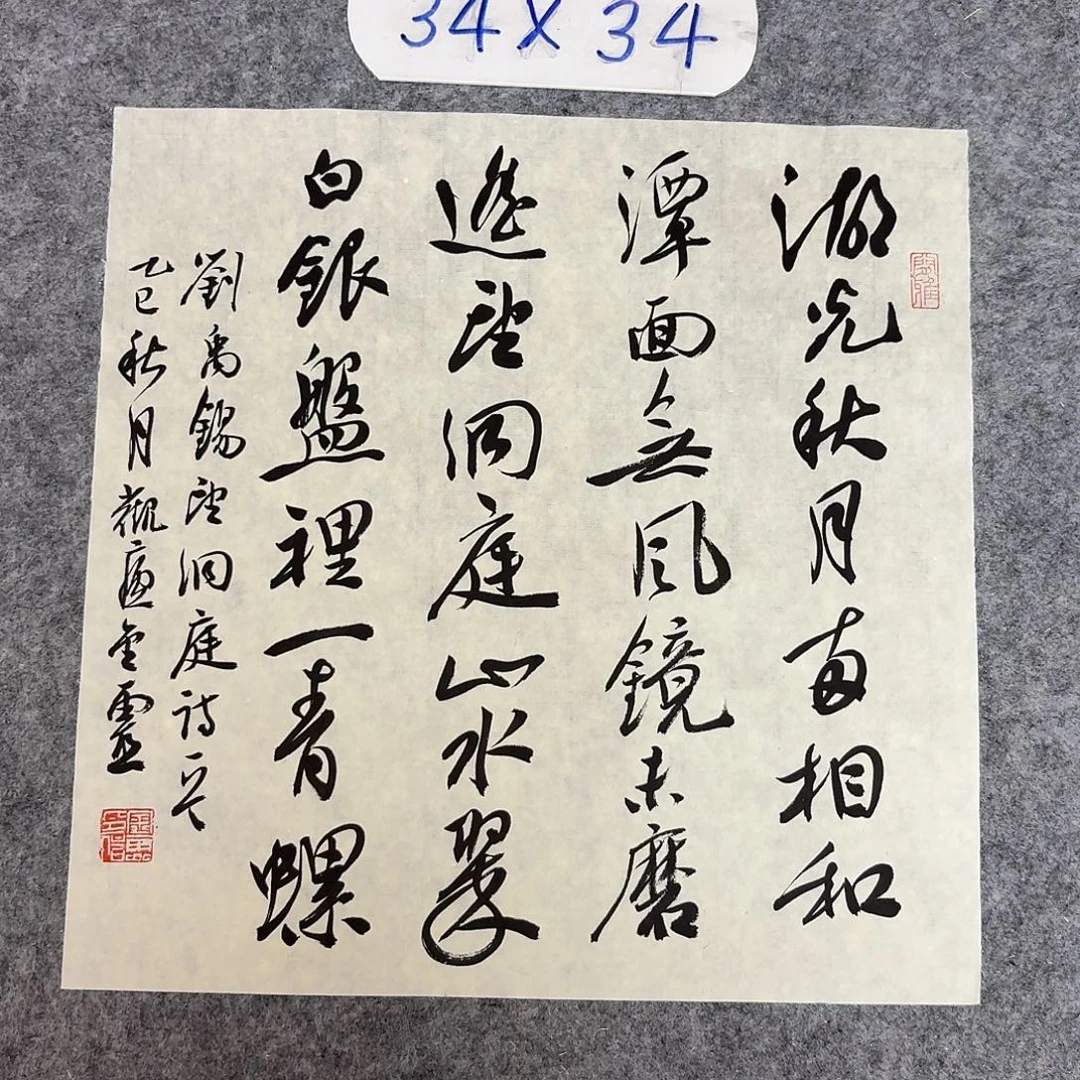 34X34
湖光秋月兩相和
潭面無風鏡未磨
遙望洞庭山水翠
白銀盤裡一青螺
劉禹錫望洞庭詩一首
乙巳秋月觀金靈